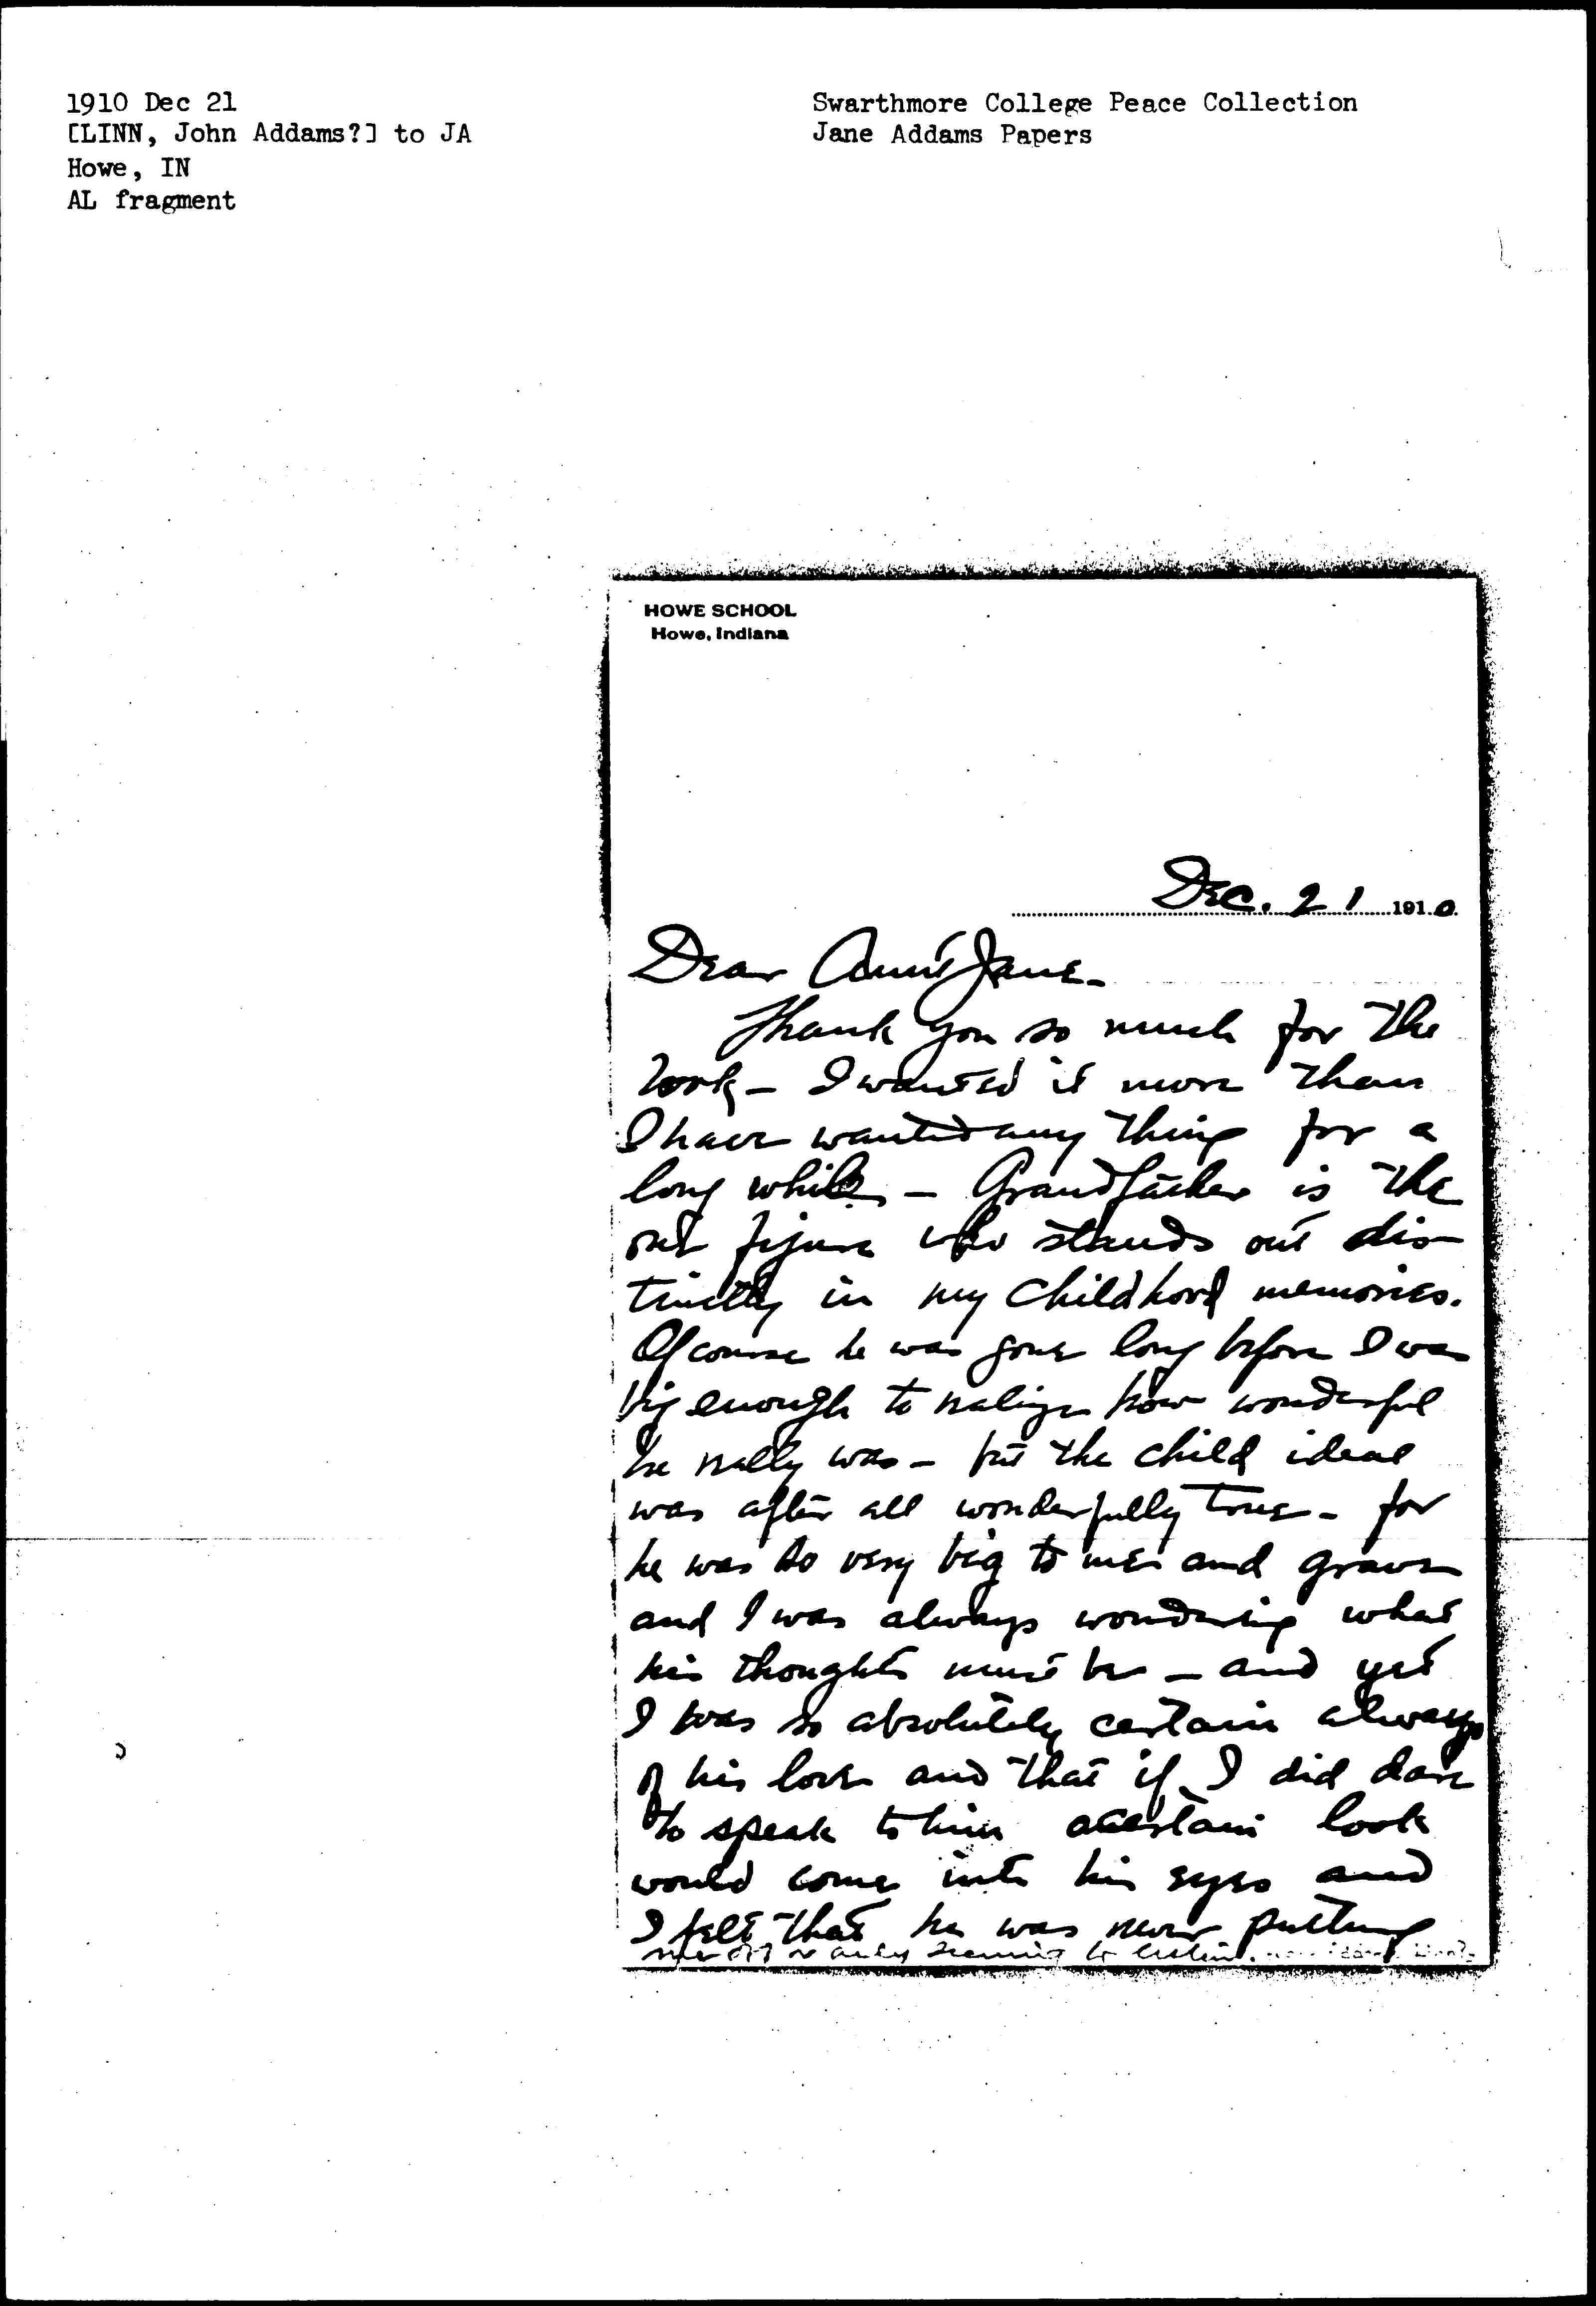 1910 Dec 21
[LINN, John Addams?] to JA
Howe, IN
AL fragment
Swarthmore College Peace Collection
Jane Addams Papers
HOWE SCHOOL
Howe, Indiana
Dec. 21 1910
Dear Aunt Jane-
Thank you so much for the
book - I wanted it more than
I have wanted any thing for a
long while - Grandfather is the
one figure who stands out dis-
tinctly in my childhood memories.
Of course he was gone long before I was
big enough to realize how wonderful
he really was - but the child ideal
was after all wonderfully true - for
he was so very big to me and grave
and I was always wondering what
his thoughts must be - and yet
I was so absolutely certain always
of his love and that if I did dare
to speak to him a certain look
would come into his eyes and
I felt that he was never putting
me off or only seeming to listen.